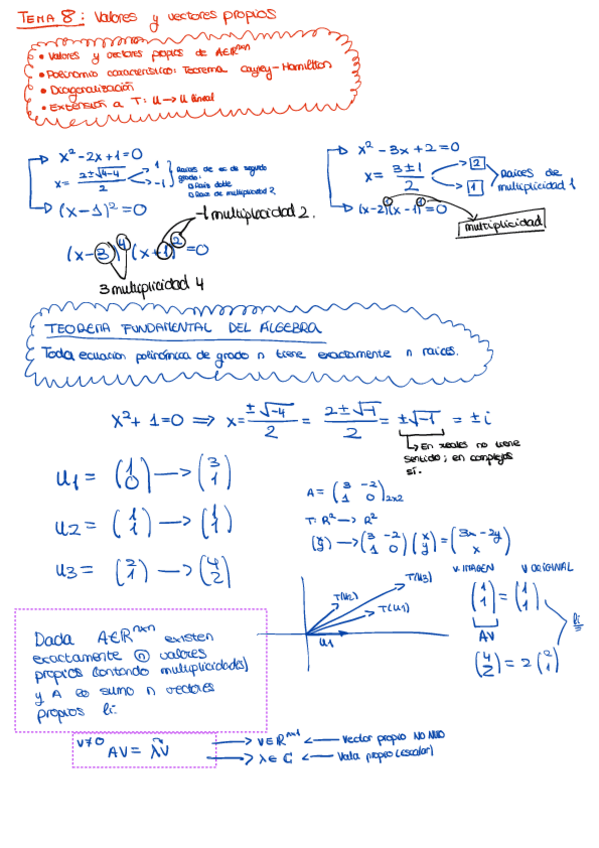 TEMA 8: Valores y vectores propios
• Valores y vectores propios de A∈R^nxn
• Polinomio característico: Teorema Cayley-Hamilton
• Diagonalización
• Extensión a T: U → U lineal
x² - 2x + 1 = 0
x = (2 ± √4-4)/2 → 1
→ -1
Raíces de ec de segundo grado:
(x-1)² = 0
x² - 3x + 2 = 0
x = (3 ± 1)/2 → 2
→ 1
Raíces de
multiplicidad 1
(x-2)¹(x-1)¹ = 0
multiplicidad
-1 multiplicidad 2.
(x-3)⁴(x+1)² = 0
3 multiplicidad 4
TEOREMA FUNDAMENTAL DEL ALGEBRA
Toda ecuacion polinómica de grado n tiene exactamente n raices.
x² + 1 = 0 ⇒ x = ±√-4/2 = 2±√-1/2 = ±√-1 = ± i
↳ En reales no tiene
sentido; en complejos
sí.
u1 = (1 0) → (3 1)
u2 = (1 1) → (1 1)
u3 = (2 1) → (4 2)
A = (3 -2 1 0) 2x2
T: R² → R²
(x y) → (3 -2 1 0)(x y) = (3x - 2y x)
V. IMAGEN V ORIGINAL
(1 1) = (1 1)
AV
li
(4 2) = 2 (2 1)
T(u2)
T(u3)
T(u1)
u1
Dada A∈R^nxn existen
exactamente n valores
propios (contando multiplicidades)
y A lo sumo n vectores
propios li.
V≠0
AV = λV
→ V∈R^nx1 ← Vector propio NO NULO
→ λ∈C ← Valor propio (escalar)